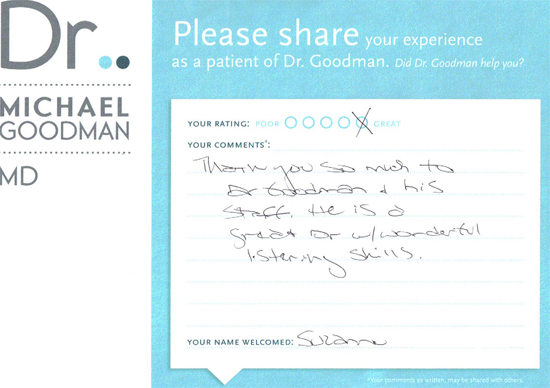 Dr..
MICHAEL
GOODMAN
MD
Please share your experience
as a patient of Dr. Goodman. Did Dr. Goodman help you?
YOUR RATING: POOR GREAT
YOUR COMMENTS*:
Thank you so much to
Dr Goodman & his
staff. He is a
great Dr w/wonderful
listening skills.
YOUR NAME WELCOMED: Suzanne
*Your comments as written, may be shared with others.